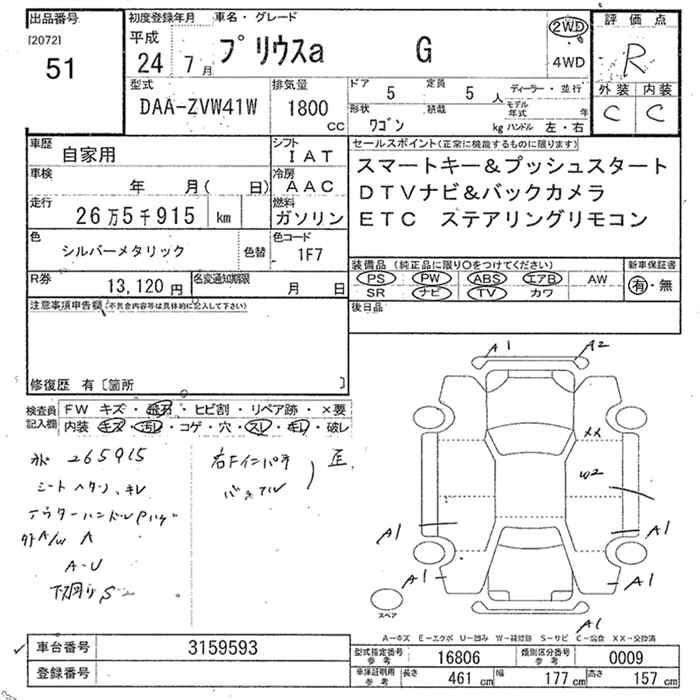 出品番号 初度登録年月 車名・グレード 評価点
[2072] 51 平成 24年 7月 プリウスa G 2WD 4WD R
型式 DAA-ZVW41W 排気量 1800 CC ドア 5 定員 5人 ディーラー・並行
形状 ワゴン 積載 kg モデル年式 年 ハンドル 左・右
外装 内装
C C
車歴 自家用 シフト IAT
車検 年 月( 日) 冷房 AAC
走行 26万5千915 km 燃料 ガソリン
色 シルバーメタリック 色替 色コード 1F7
R券 13,120円 名変通知期限 月 日
セールスポイント(正常に機能するものに限ります)
スマートキー&プッシュスタート
DTVナビ&バックカメラ
ETC ステアリングリモコン
装備品(純正品に限り○をつけてください) 新車保証書
PS PW ABS エアB AW 有・無
SR ナビ TV カワ
後日品
注意事項申告欄(不具合内容等は具体的に記入して下さい)
修復歴 有[箇所 ]
検査員記入欄 FW キズ・飛石・ヒビ割・リペア跡・×要
内装 キズ・汚レ・コゲ・穴・スレ・キレ・破レ
265915
A-U
A1 A2
XX
W2
A1 A1
A1 A1
A1
スペア
A-キズ E-エクボ U-凹み W-補修跡 S-サビ C-腐食 XX-交換済
車台番号 3159593
登録番号
型式指定番号 参考 16806 類別区分番号 参考 0009
車庫証明用 参考 長さ 461cm 幅 177cm 高さ 157cm